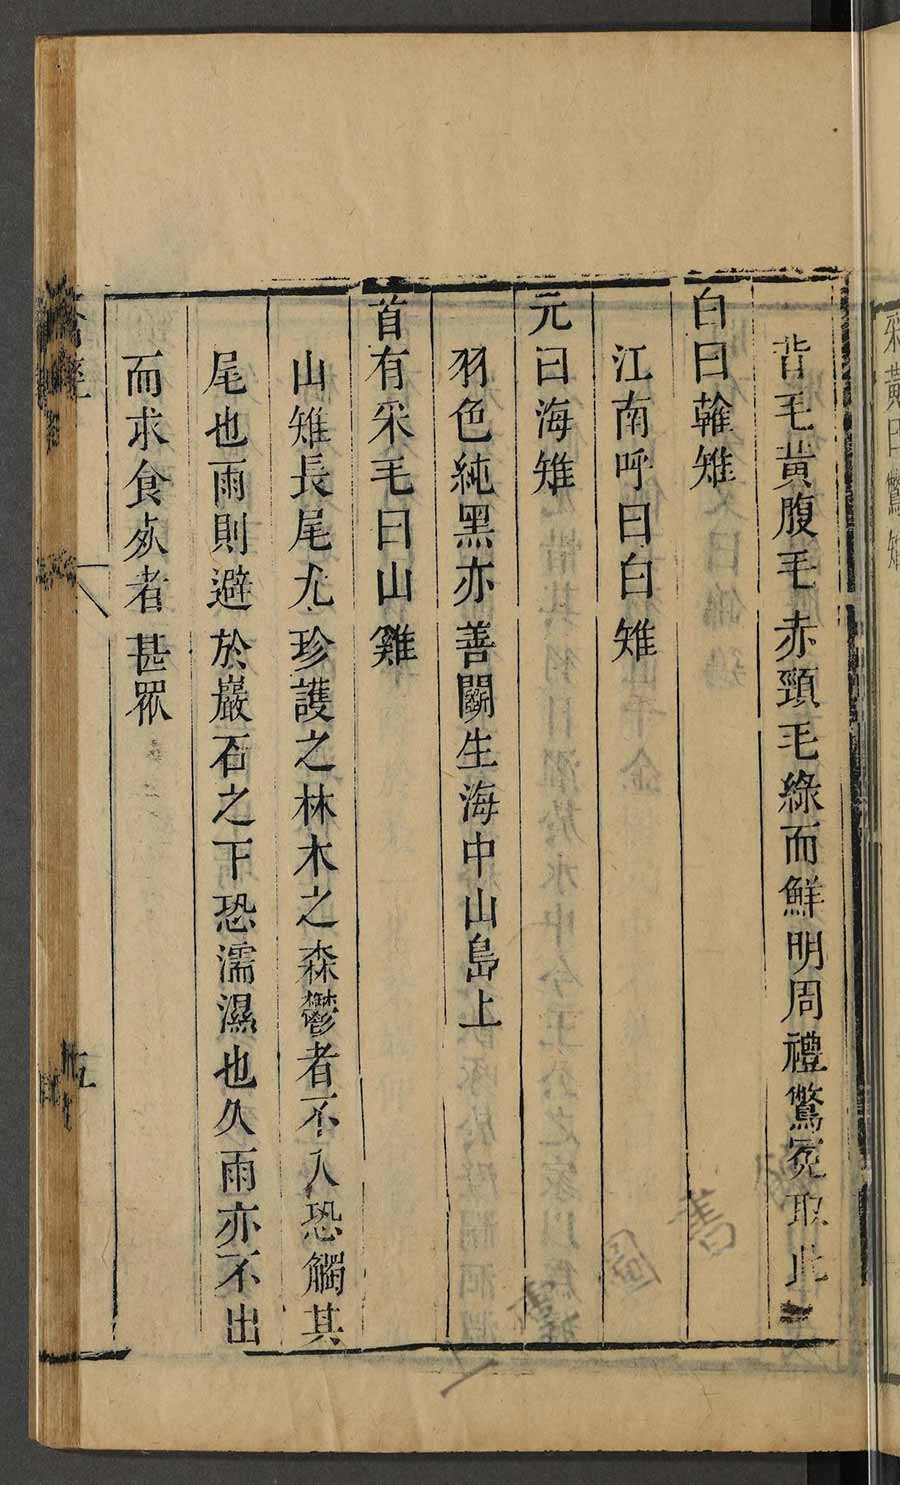 背毛黄腹毛赤頸毛綠而鮮明周禮鷩冕取此
白曰雗雉
江南呼曰白雉
元曰海雉
羽色純黑亦善鬭生海中山島上
首有采毛曰山雞
山雉長尾尤珍護之林木之森鬱者不入恐觸其
尾也雨則避於巖石之下恐濡濕也久雨亦不出
而求食死者甚眾
禽經
五